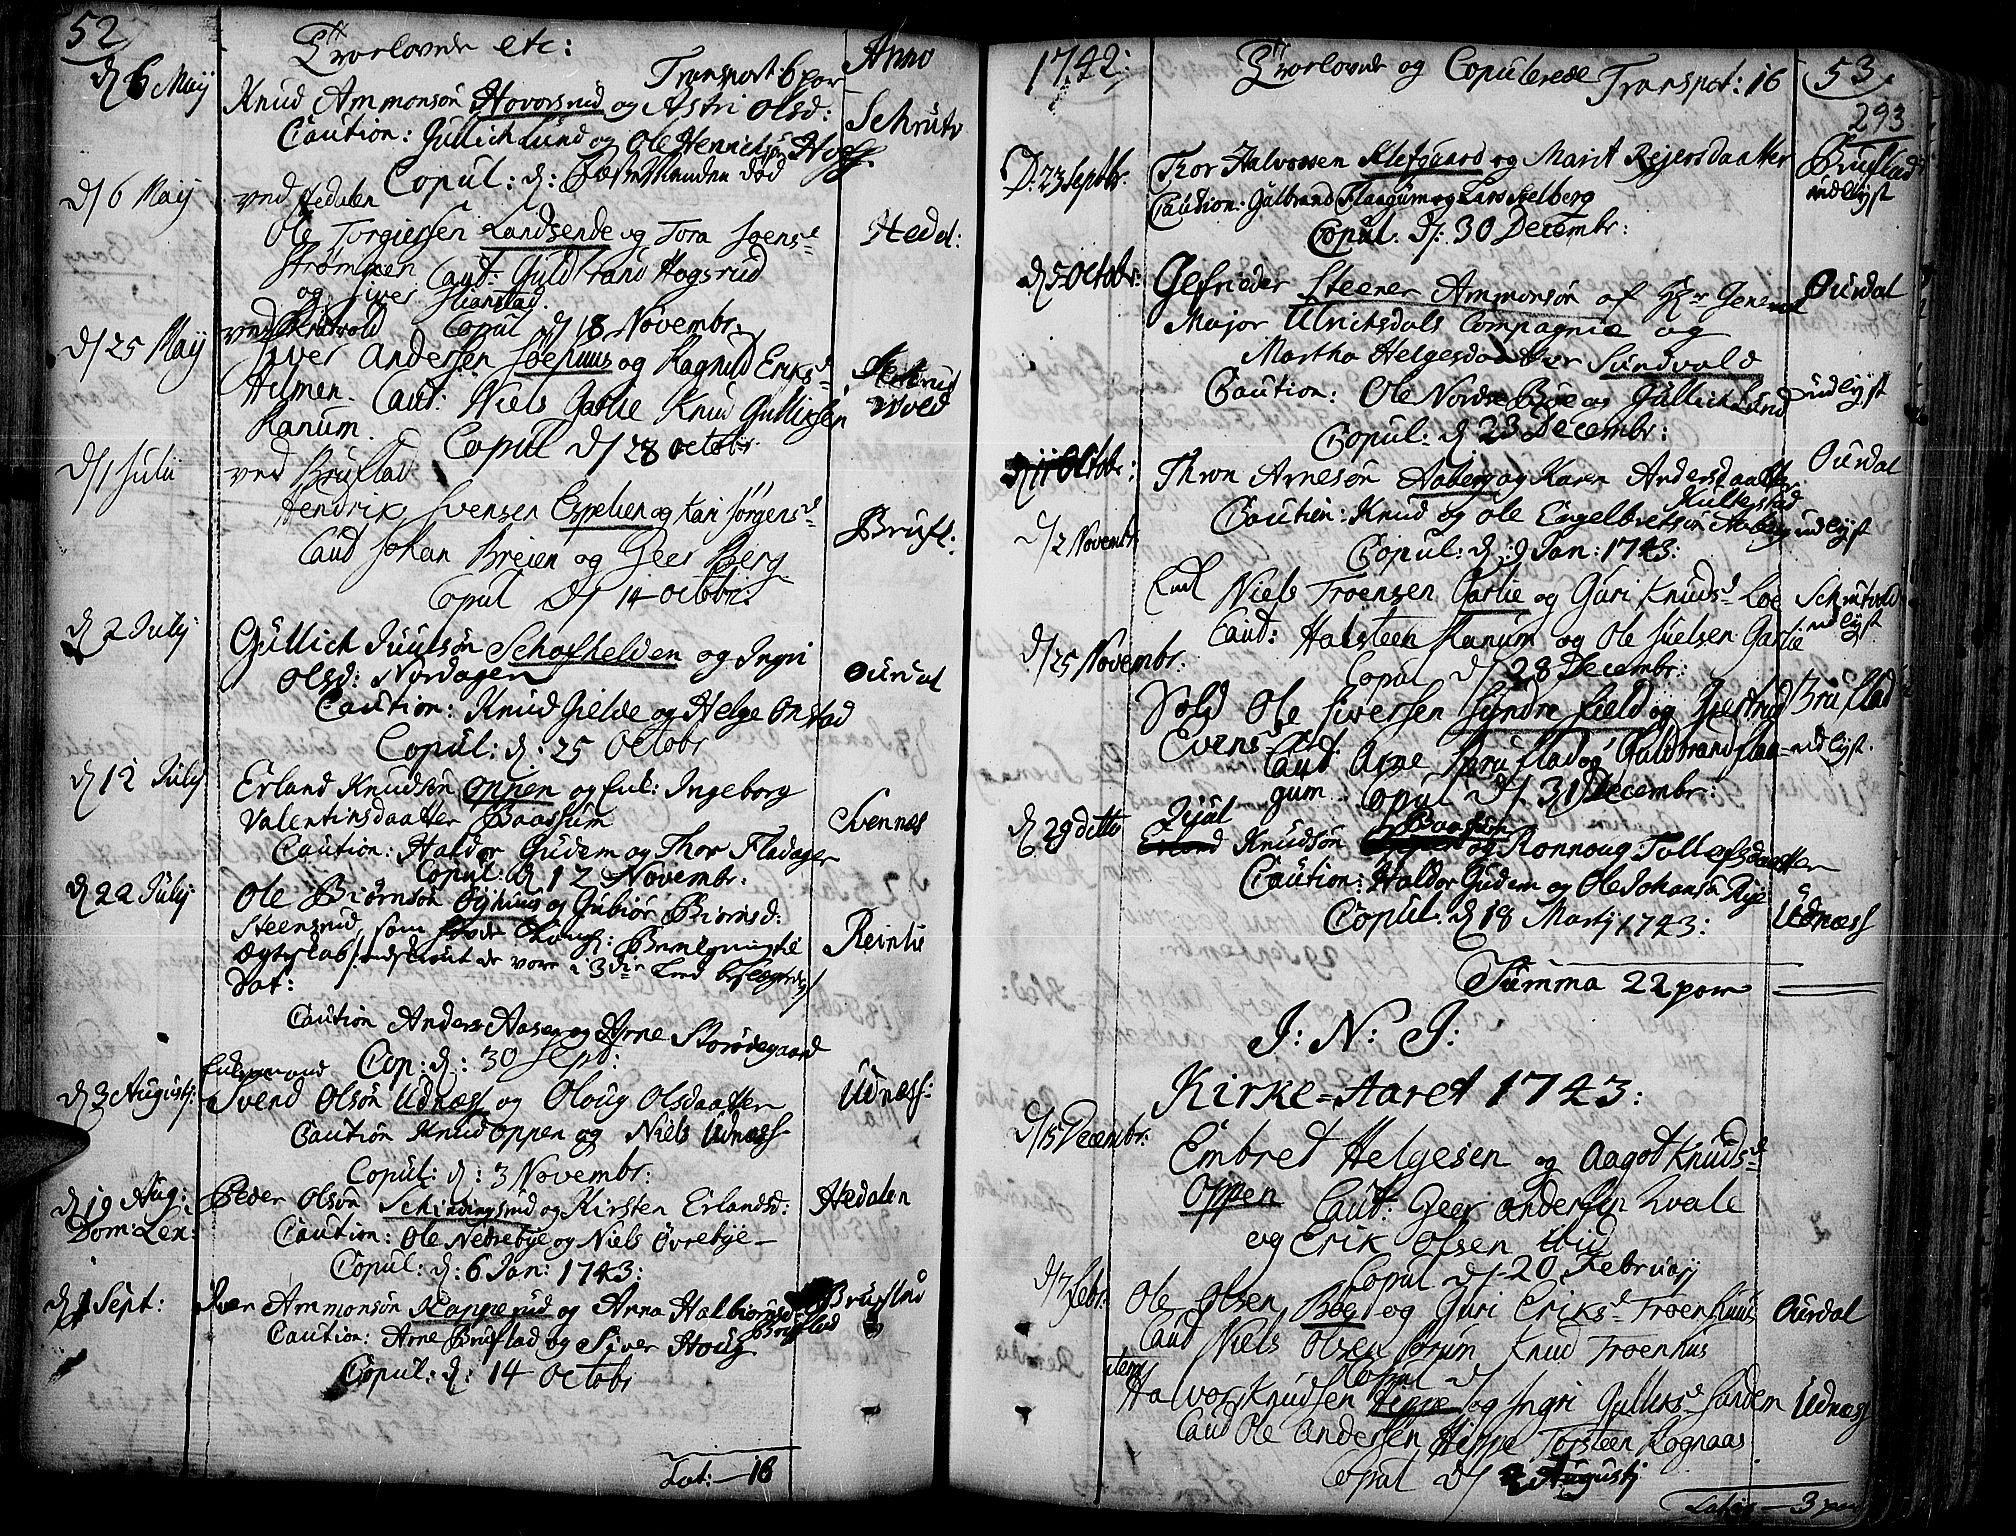 52
Trorlovede etc:
Anno
d 6 Maij
Transport 6 par
Knud Ammonsøn Hovorsrud og Astri Olsd:
Schrutv
Caution: Gullich Lund og Ole Henrichsøn Hoff
Copul: d: Fæstemanden død
d/ 6 Maij
ved Hedalen
Ole Torgiersen Landsende og Tora Joens=
Hedal:
Strømmen Caut: Guldbrand Hogsrud
og Siver
Copul d/ 18 Novembr.
d/ 25 Maij
Siver Andersen Soehuus og Ragnild Eriks=
Hilmen. Caut: Niels Garlie Knud Gulliksen
Wold
Ranum.
Copul d/ 28 octobr.
d/1 Julii
ved Bruflat
Hendrik Svensen Espelien og Kari Jørgens=
Brufl:
Caud Johan Breien og Geer Berg
Copul d/ 14 octobr:
d 2 July:
Gullich Juulsøn Schofhelden og Ingri
Olsd: Nordagen
Ourdal
Caution: Knud Gielde og Helge Onstad
Copul: d: 25 Octobr
d 12 July
Erland Knudsøn Oppen og Ingeborg
Valentinsdaatter Baassum
Svennes
Caution: Haldor Gudem og Thor Fladager
Copul: d 12 Novembr:
d 22 July
Ole Biørnsøn Øyhuus og Gubiør Biørnsd:
Steensrud, som
Reinlie
dat:
Caution Anders Aaberg og Arne Storødegaard
Cop: d: 30 Sept:
d 3 Augustj:
Svend Olsøn Udnæss og Oloug Olsdaatter
Udnæss:
Caution Knud Oppen og Niels Udnæss
Copul: d: 3 Novembr:
d 19 Aug:
Peder Olsøn Schindingsrud og Kirsten Erlandsd:
Hedalen
Caution: Ole Nedrebye og Niels Øvrebye
Copul: d: 6 Jan: 1743:
d 1 Sept:
Iver Ammonsøn Kapperud og Anna Halbiørnsd
Bruflad
Caution: Arne Bruflad og Siver Houg
Copul: d: 14 Octobr
Lat: 16
1742:
Trorlovede og Copulerede
Transpot: 16
53
293
D: 23 Septbr.
Thor Halvorsen Klefgaard og Marit Reiersdaatter
Bruflad
udlyst
Caution: Gulbrand Flaagum og Lars Kelberg
Copul: d: 30 Decembr:
d 5 Octobr:
Gefrieder Steener Ammonsøn af Hr General
Ourdal
Major Ulrichsdals Compagnie og
Martha Helgesdaatter Sundvold
Caution: Ole Nordre Bøe og Gullich Lund
udlyst
Copul: d 23 Decembr:
d 11 Octobr:
Thron Arnesøn Aaberg og Karn Andersdaatter
Ourdal
Kullestad
Caution: Knud og Ole Engelbretsøn Aaberg
udlyst
Copul: d: 9 Jan: 1743:
d/2 Novembr
Niels Troensen Garlie og Guri Knuds= Loe
Schrutvold
udlyst
Caut: Halsteen Ranum og Ole Juelsen Garlie
Copul d/ 28 Decembr:
d/25 Novembr:
Sold Ole Siversen Syndre Field og Giertrud
Bruflad
Evens=
Caut Arne Bruflad og Guldbrand Flaa-
udlyst.
gum. Copul d/ 31 Decembr:
d 29 ditto
Juul
Knudsøn Baassum og Ronnoug Tollefsdaatter
Caution: Haldor Gudem og Ole Johansen Rye
Udnæss
Copul: d 18 Martj 1743:
Summa 22 par
J: N: J:
Kirke=Aaret 1743:
d/15 Decembr:
Embret Helgesen og Aagot Knuds=
Oppen Caut: Geer Andersen Qvale
og Erik Olsen ibid
Copul d/ 20 Februarij
d/7 Febr:
Ole Olsen Bøe og Guri Eriks= Troenhuus
Ourdal
Caud Niels Olsen Brum Knud Troenhus
Copul d/
item
Halvor Knudsen Hippe og Ingri Gulliks= Sandem
Udnæss
Caud Ole Andersen Hippe Torsteen Rognaas
Copul d/ 2 Augustj
Latus - 3 par